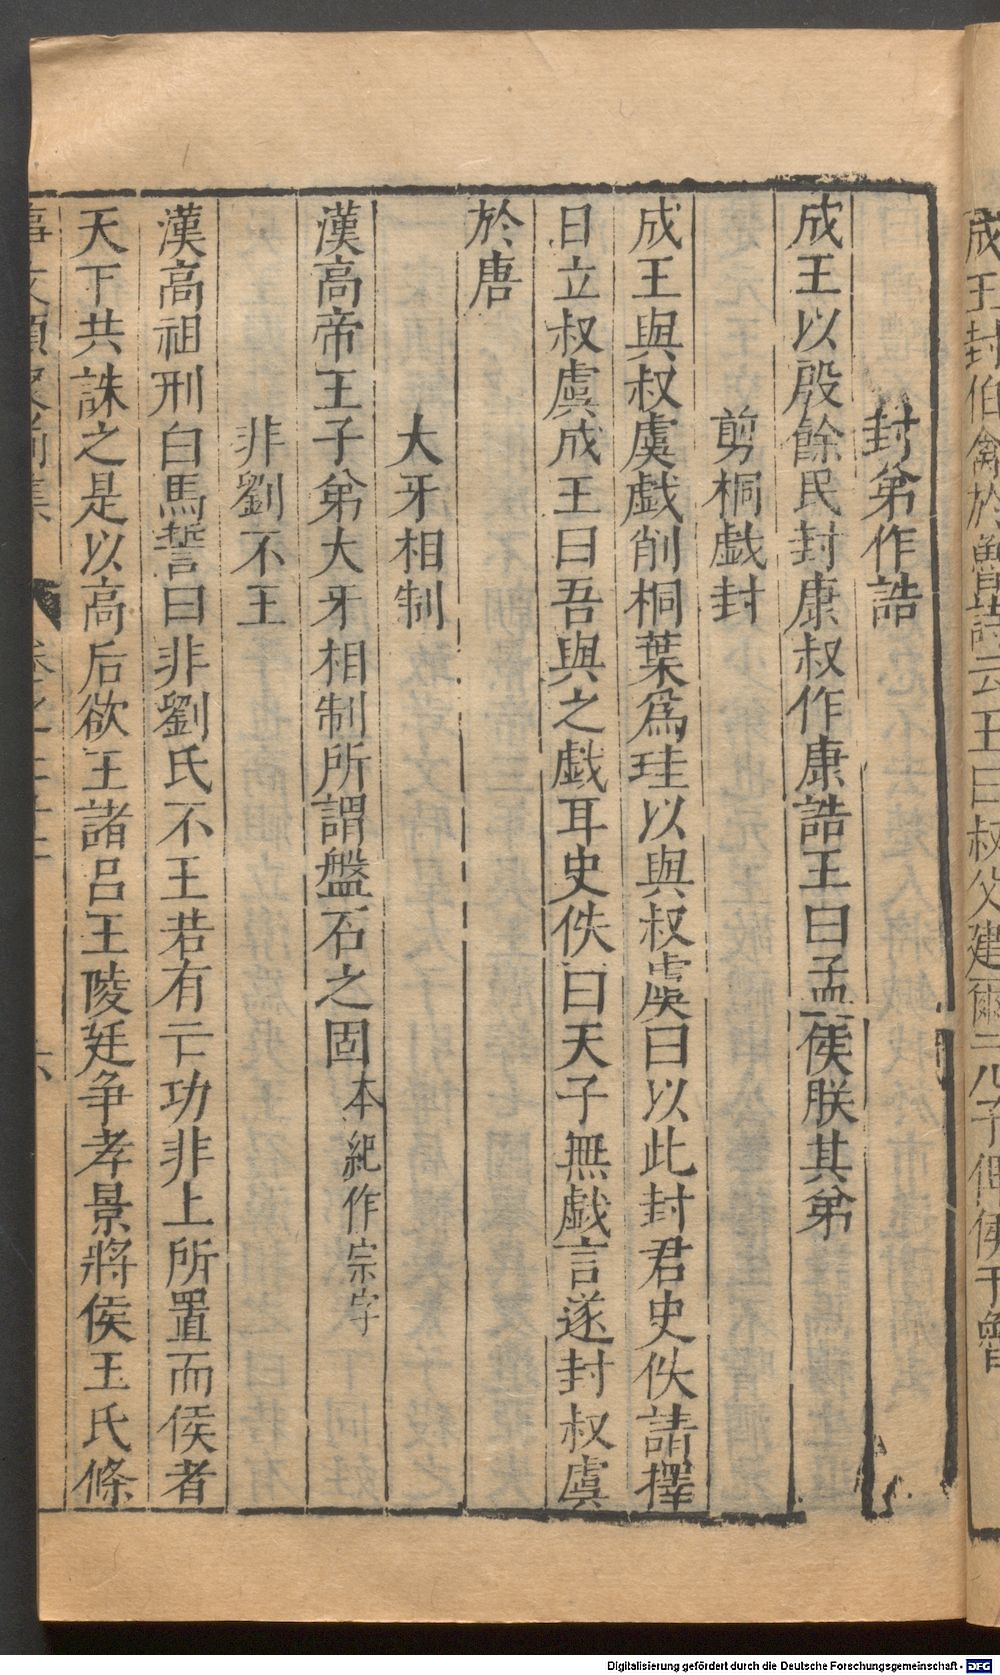 成王封伯禽於魯詩云王曰叔父建爾元子俾侯于魯
封弟作誥
成王以殷餘民封康叔作康誥王曰孟侯朕其弟
剪桐戯封
成王與叔虞戯削桐葉爲珪以與叔虞曰以此封君史佚請擇
日立叔虞成王曰吾與之戯耳史佚曰天子無戯言遂封叔虞
於唐
大牙相制
漢高帝王子弟大牙相制所謂盤石之固本紀作宗字
非劉不王
漢高祖刑白馬誓曰非劉氏不王若有亡功非上所置而侯者
天下共誅之是以高后欲王諸呂王陵廷争孝景將侯王氏條
事文類聚前集 卷之二十 六
Digitalisierung gefördert durch die Deutsche Forschungsgemeinschaft - DFG